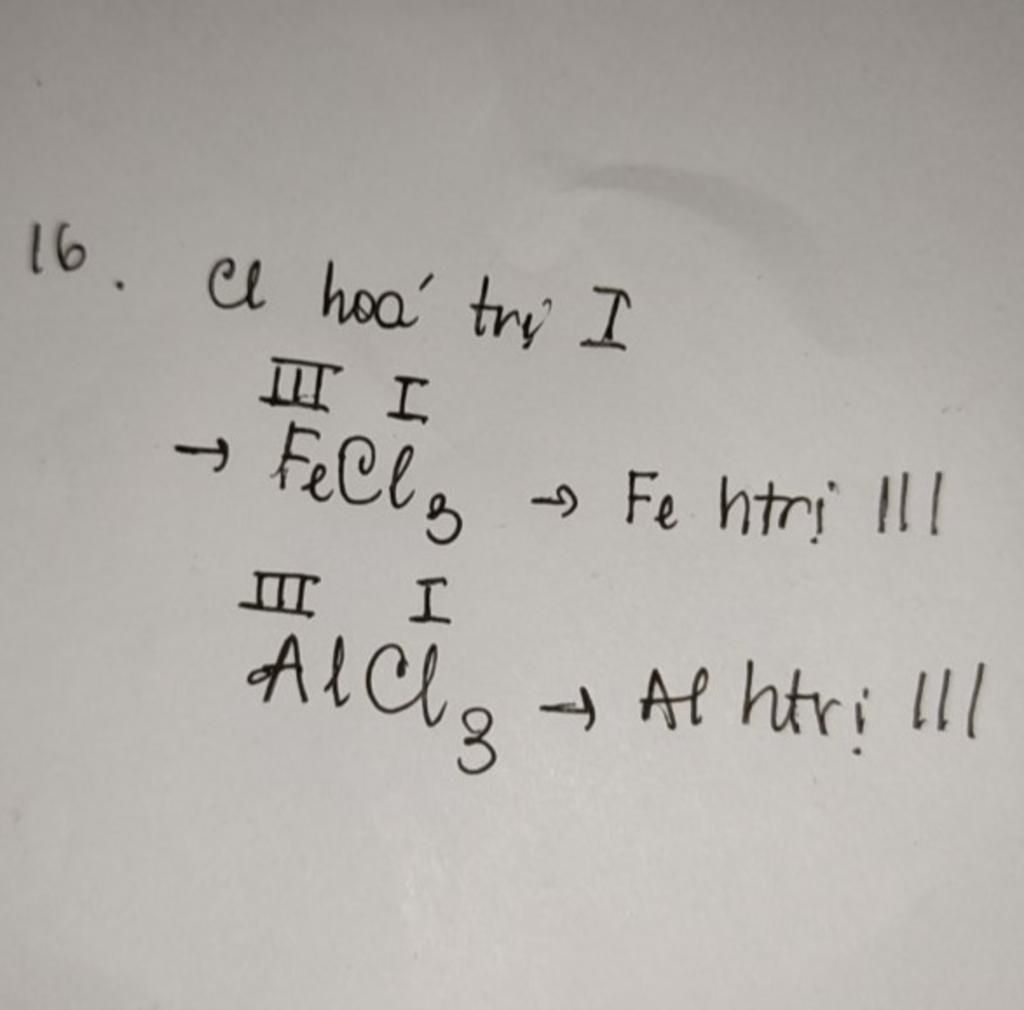 16. Cl hoá trị I
III I
→ FeCl₃ → Fe htrị III
III I
AlCl₃ → Al htrị III